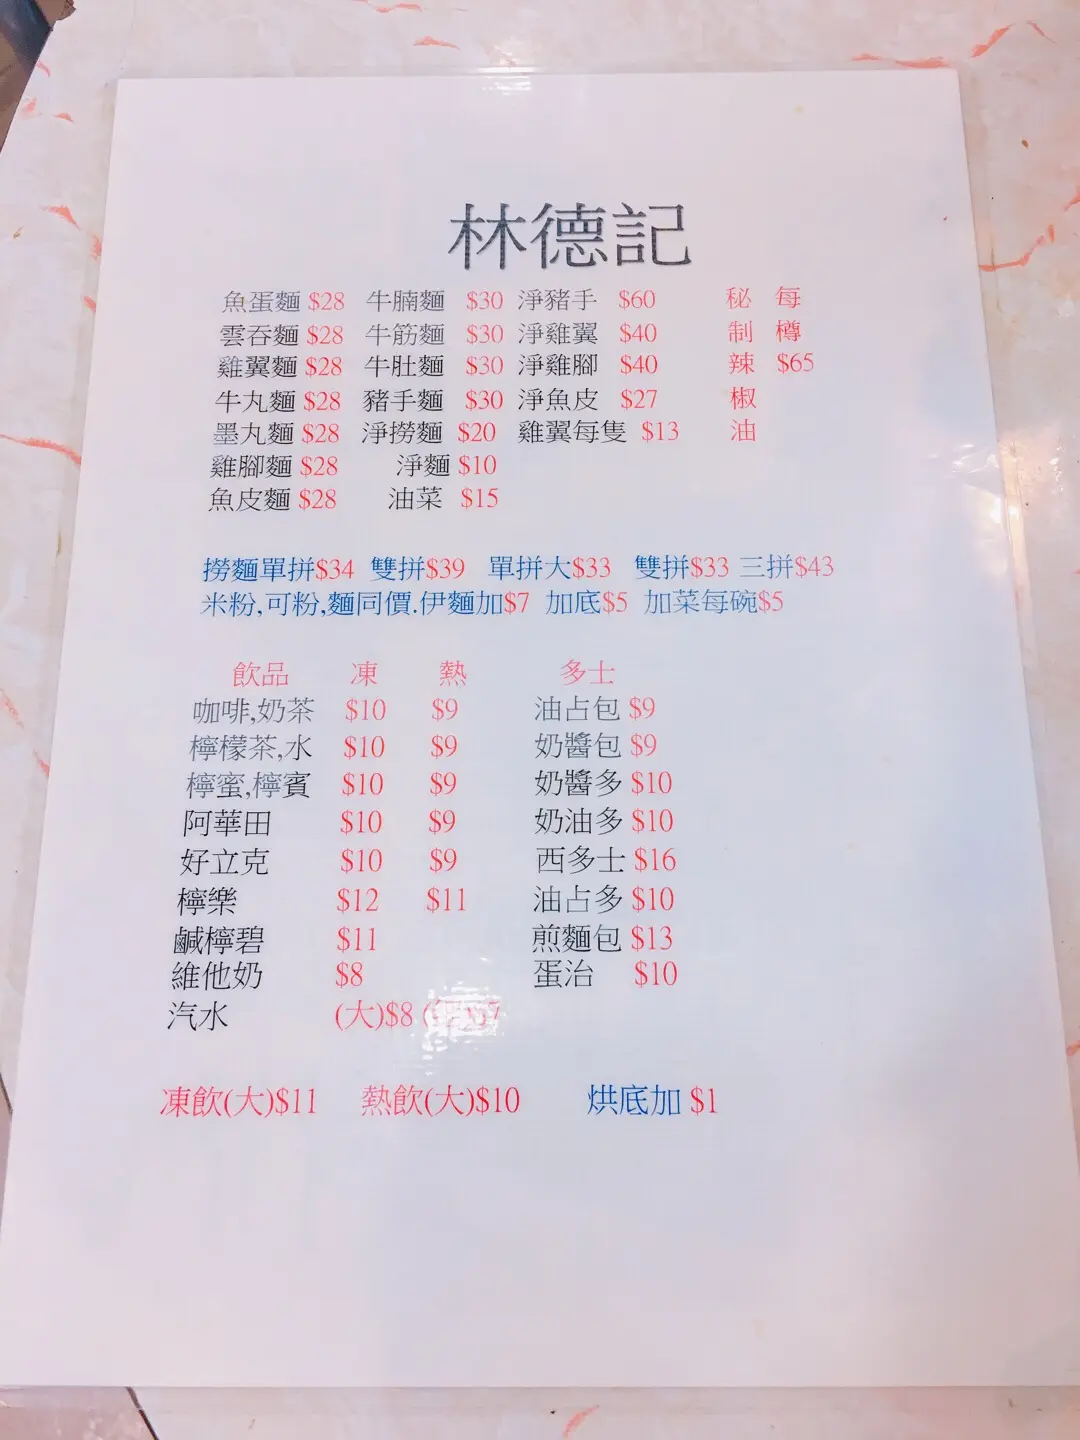 林德記
魚蛋麵 $28 牛腩麵 $30 淨豬手 $60 秘 每
雲吞麵 $28 牛筋麵 $30 淨雞翼 $40 制 樽
雞翼麵 $28 牛肚麵 $30 淨雞腳 $40 辣 $65
牛丸麵 $28 豬手麵 $30 淨魚皮 $27 椒
墨丸麵 $28 淨撈麵 $20 雞翼每隻 $13 油
雞腳麵 $28 淨麵 $10
魚皮麵 $28 油菜 $15
撈麵單拼$34 雙拼$39 單拼大$33 雙拼$33 三拼$43
米粉,可粉,麵同價.伊麵加$7 加底$5 加菜每碗$5
飲品 凍 熱 多士
咖啡,奶茶 $10 $9 油占包 $9
檸檬茶,水 $10 $9 奶醬包 $9
檸蜜,檸賓 $10 $9 奶醬多 $10
阿華田 $10 $9 奶油多 $10
好立克 $10 $9 西多士 $16
檸樂 $12 $11 油占多 $10
鹹檸碧 $11 煎麵包 $13
維他奶 $8 蛋治 $10
汽水 (大)$8
凍飲(大)$11 熱飲(大)$10 烘底加 $1